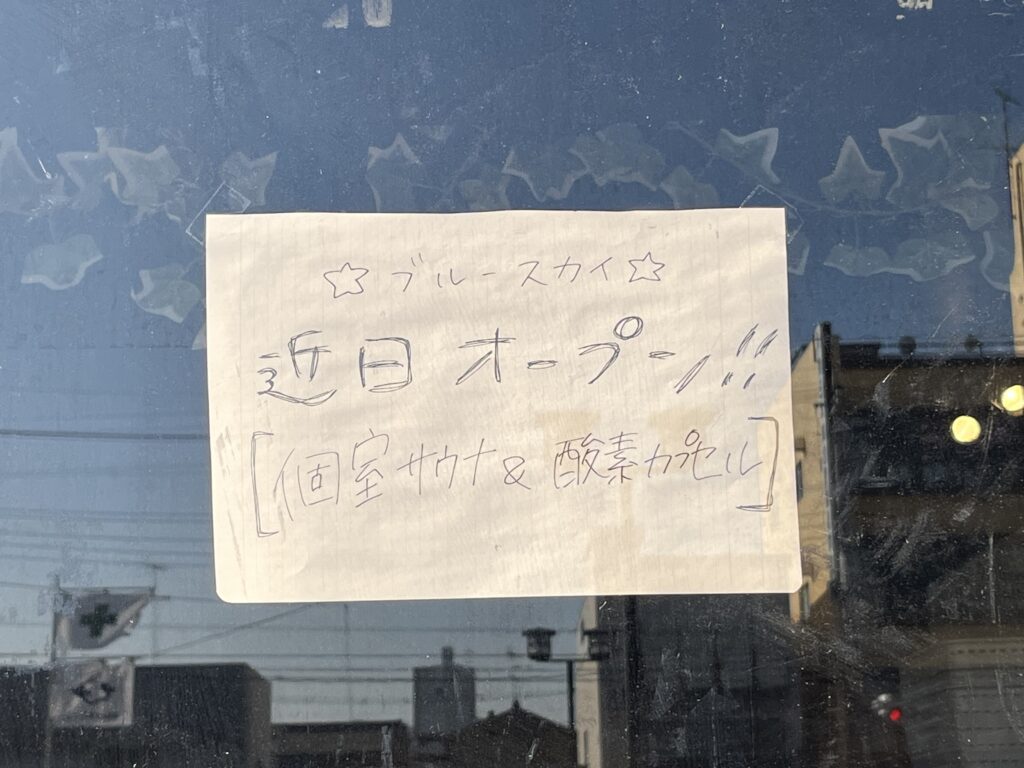 ☆ブルースカイ☆
近日オープン!!
[個室サウナ&酸素カプセル]